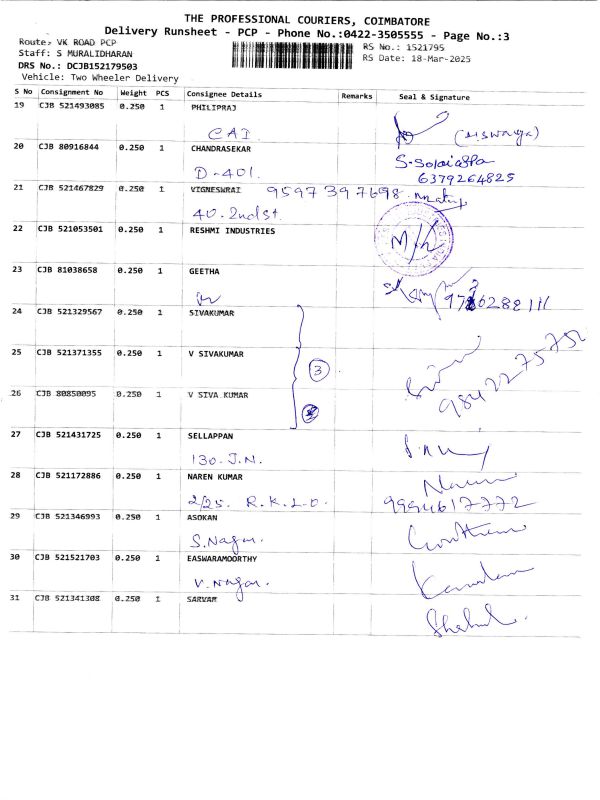 THE PROFESSIONAL COURIERS, COIMBATORE
Delivery Runsheet - PCP - Phone No.:0422-3505555 - Page No.:3
Route: VK ROAD PCP
RS No.: 1521795
Staff: S MURALIDHARAN
RS Date: 18-Mar-2025
DRS No.: DCJB152179503
Vehicle: Two Wheeler Delivery
S No Consignment No Weight PCS Consignee Details Remarks Seal & Signature
19 CJB 521493085 0.250 1 PHILIPRAJ
CAI
20 CJB 80916844 0.250 1 CHANDRASEKAR
D-401.
6379264825
21 CJB 521467829 0.250 1 VIGNESWRAI 9597397698
40. 2nd st.
22 CJB 521053501 0.250 1 RESHMI INDUSTRIES
23 CJB 81038658 0.250 1 GEETHA
24 CJB 521329567 0.250 1 SIVAKUMAR
25 CJB 521371355 0.250 1 V SIVAKUMAR
3
9842275752
26 CJB 80850095 0.250 1 V SIVA KUMAR
27 CJB 521431725 0.250 1 SELLAPPAN
130. J.N.
28 CJB 521172886 0.250 1 NAREN KUMAR
Naren
2/25. R.K.L.O. 9994617772
29 CJB 521346993 0.250 1 ASOKAN
S.Nagar.
30 CJB 521521703 0.250 1 EASWARAMOORTHY
V.Nagar.
31 CJB 521341308 0.250 1 SARVAM